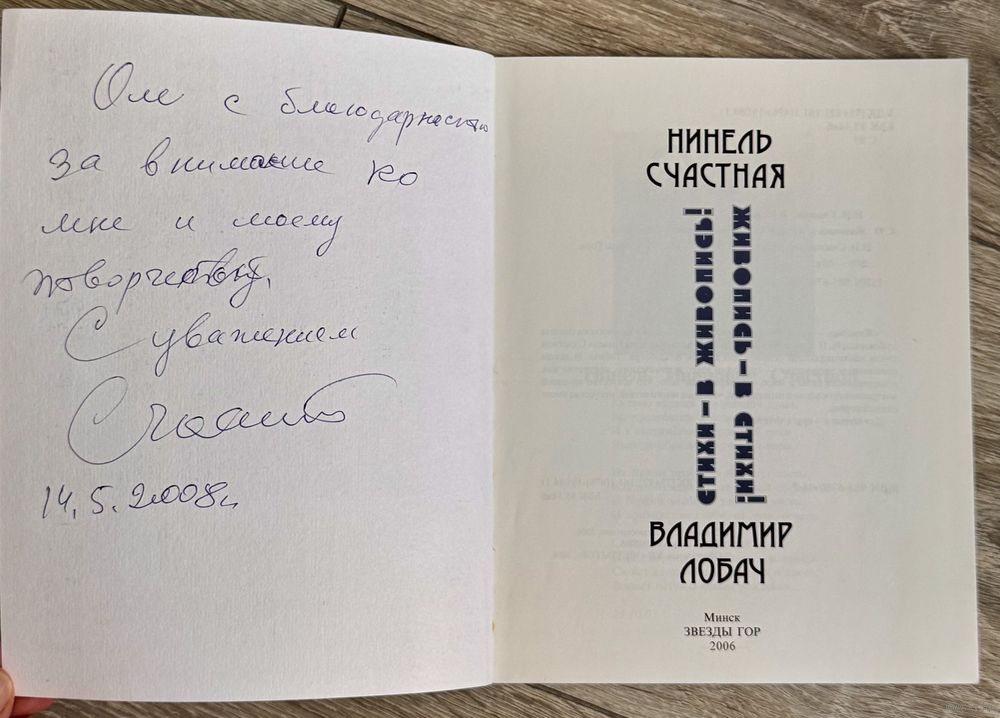 Оле с благодарностью
за внимание ко
мне и моему
творчеству.
С уважением
14.5.2008г.
НИНЕЛЬ
СЧАСТНАЯ
ЖИВОПИСЬ – В СТИХИ!
СТИХИ – В ЖИВОПИСЬ!
ВЛАДИМИР
ЛОБАЧ
Минск
ЗВЕЗДЫ ГОР
2006